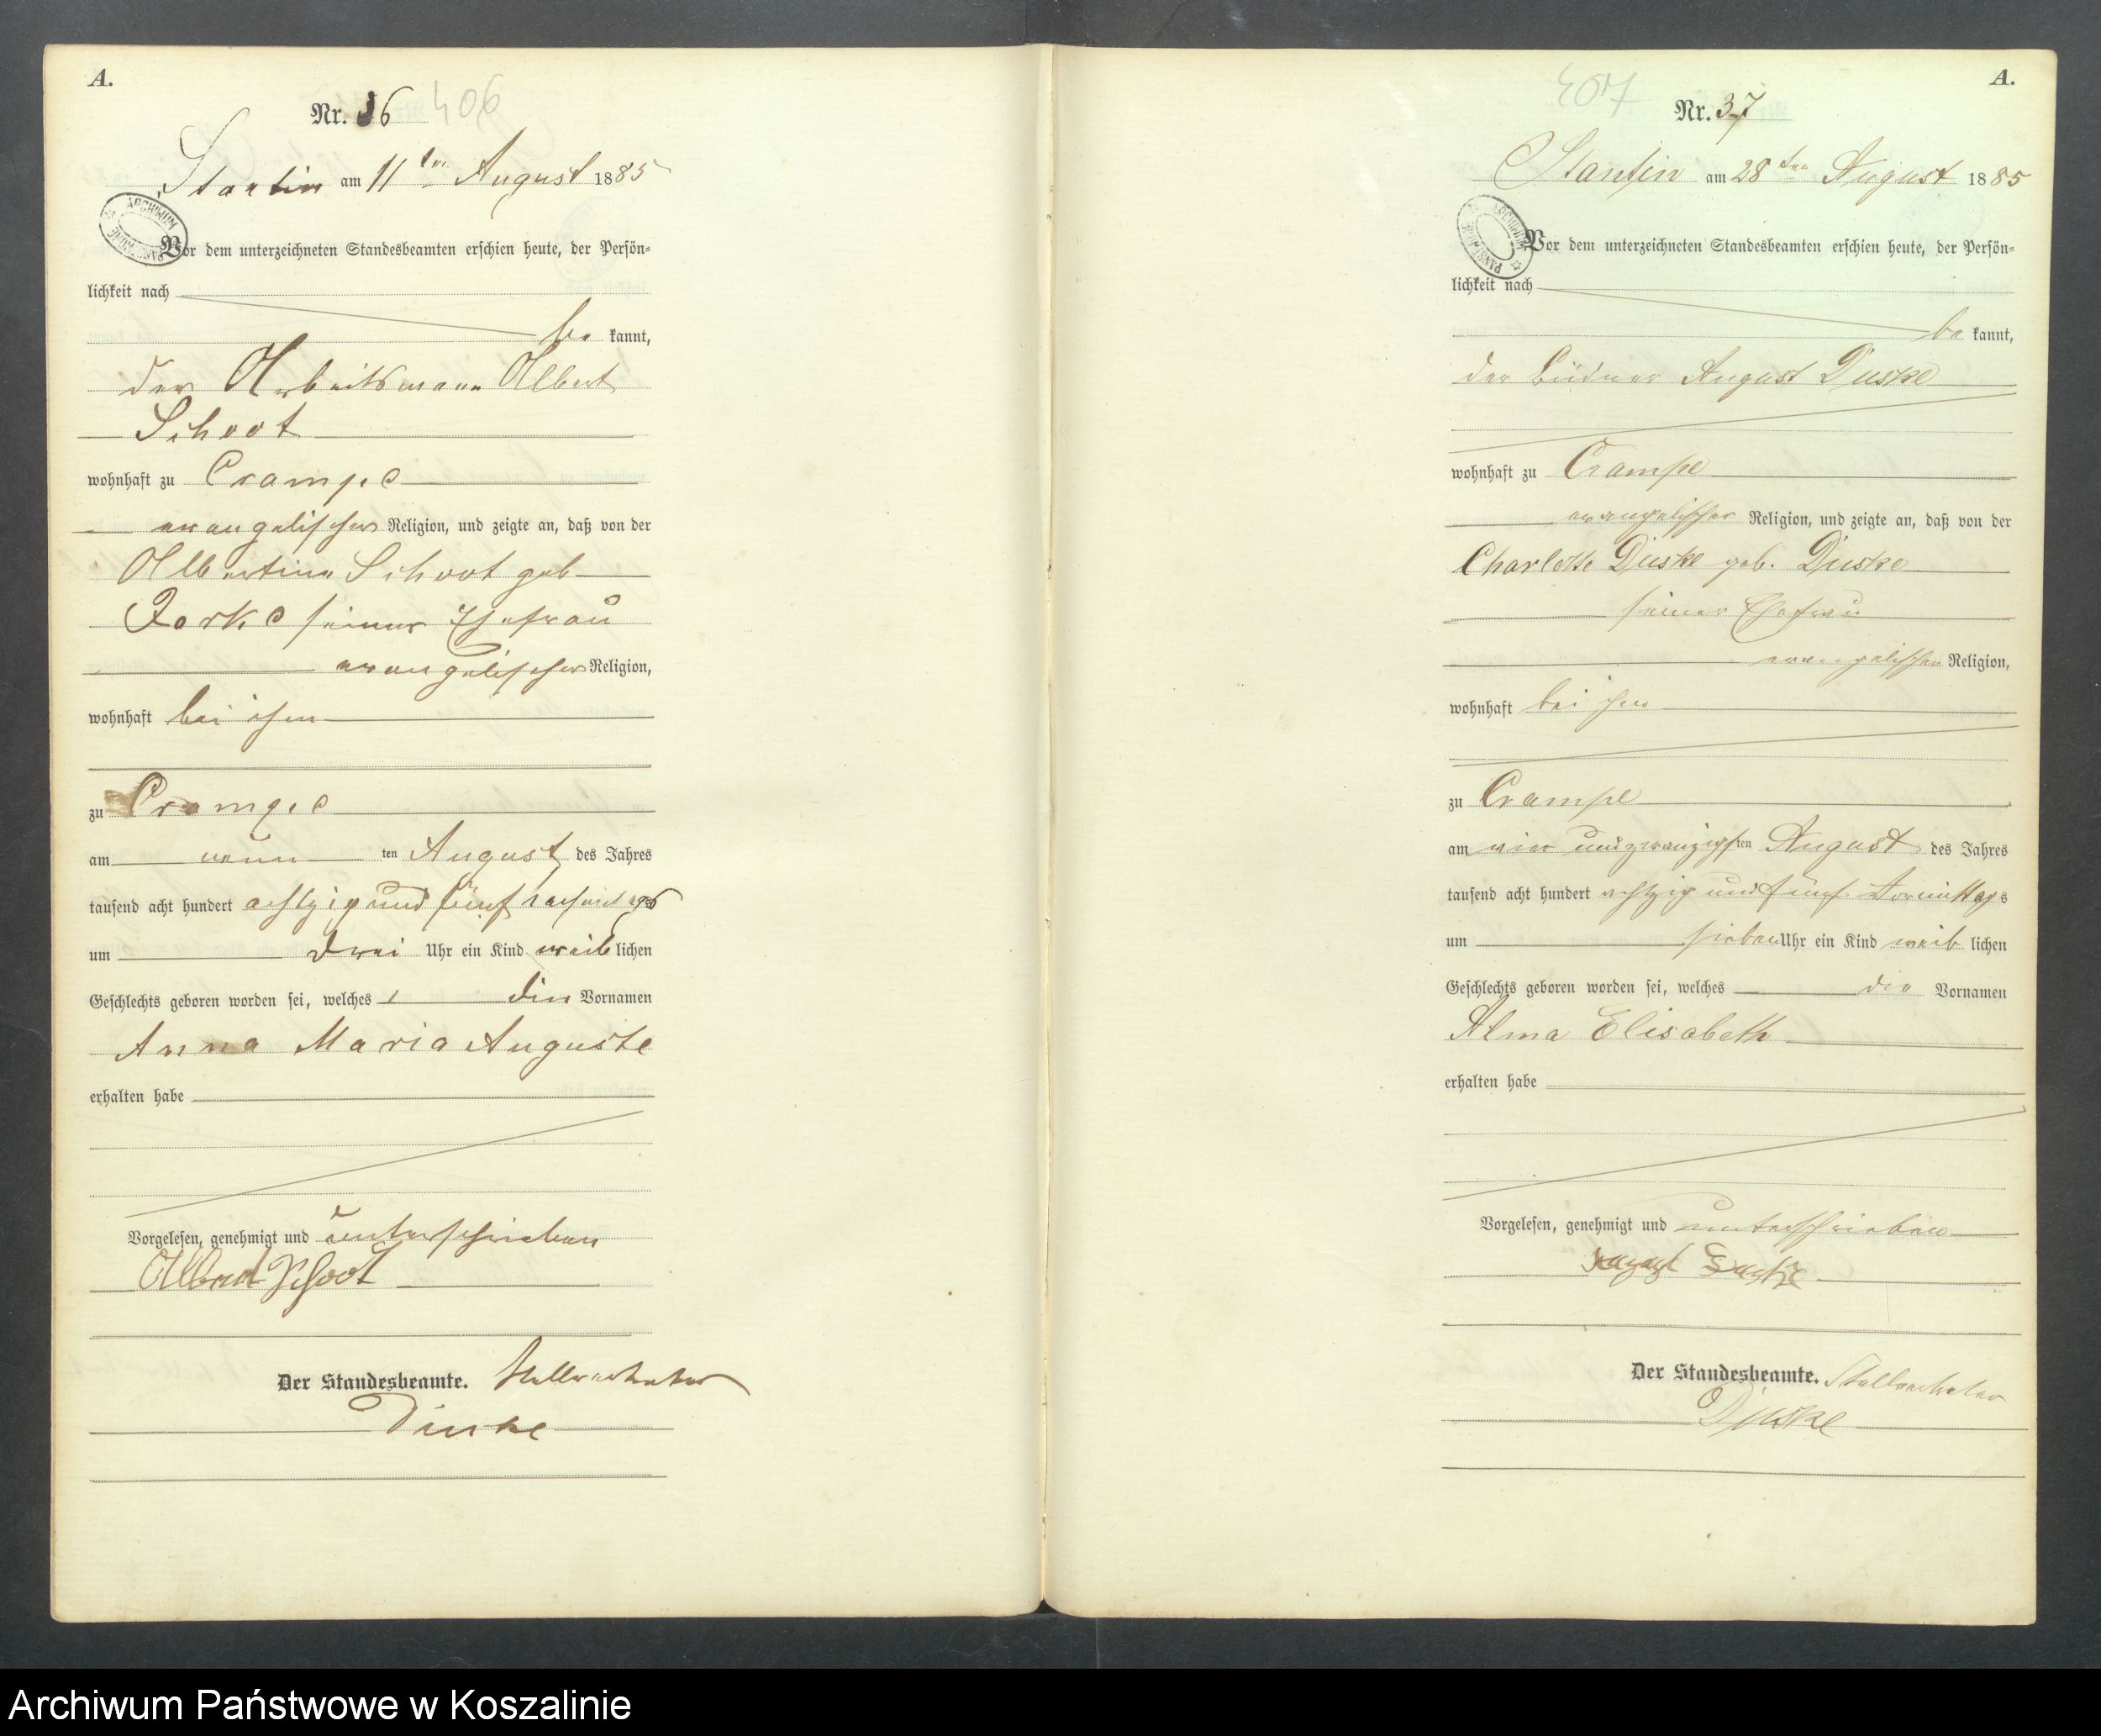 A.
Nr. 36 406
Stantin am 11ten August 1885
ARCHIWUM PAŃSTWOWE
Vor dem unterzeichneten Standesbeamten erschien heute, der Persön=
lichkeit nach
be kannt,
der Arbeitsmann Albert
Schoot
wohnhaft zu Crampe
evangelischer Religion, und zeigte an, daß von der
Albertine Schoot geb
seiner Ehefrau
evangelischer Religion,
wohnhaft bei ihm
zu Crampe
am neun ten August des Jahres
tausend acht hundert achtzig und fünf nachmittags
um drei Uhr ein Kind weib lichen
Geschlechts geboren worden sei, welches die Vornamen
Anna Maria Auguste
erhalten habe
Vorgelesen, genehmigt und unterschrieben
Albert Schoot
Der Standesbeamte. Stellvertreter
A.
407
Nr. 37
Stantin am 28ten August 1885
ARCHIWUM PAŃSTWOWE
Vor dem unterzeichneten Standesbeamten erschien heute, der Persön=
lichkeit nach
be kannt,
der Büdner August Duske
wohnhaft zu Crampe
evangelischer Religion, und zeigte an, daß von der
Charlotte Duske geb. Duske
seiner Ehefrau
evangelischer Religion,
wohnhaft bei ihm
zu Crampe
am ein und zwanzigsten August des Jahres
tausend acht hundert achtzig und fünf Vormittags
um sieben Uhr ein Kind weib lichen
Geschlechts geboren worden sei, welches die Vornamen
Alma Elisabeth
erhalten habe
Vorgelesen, genehmigt und unterschrieben
August Duske
Der Standesbeamte. Stellvertreter
Duske
Archiwum Państwowe w Koszalinie